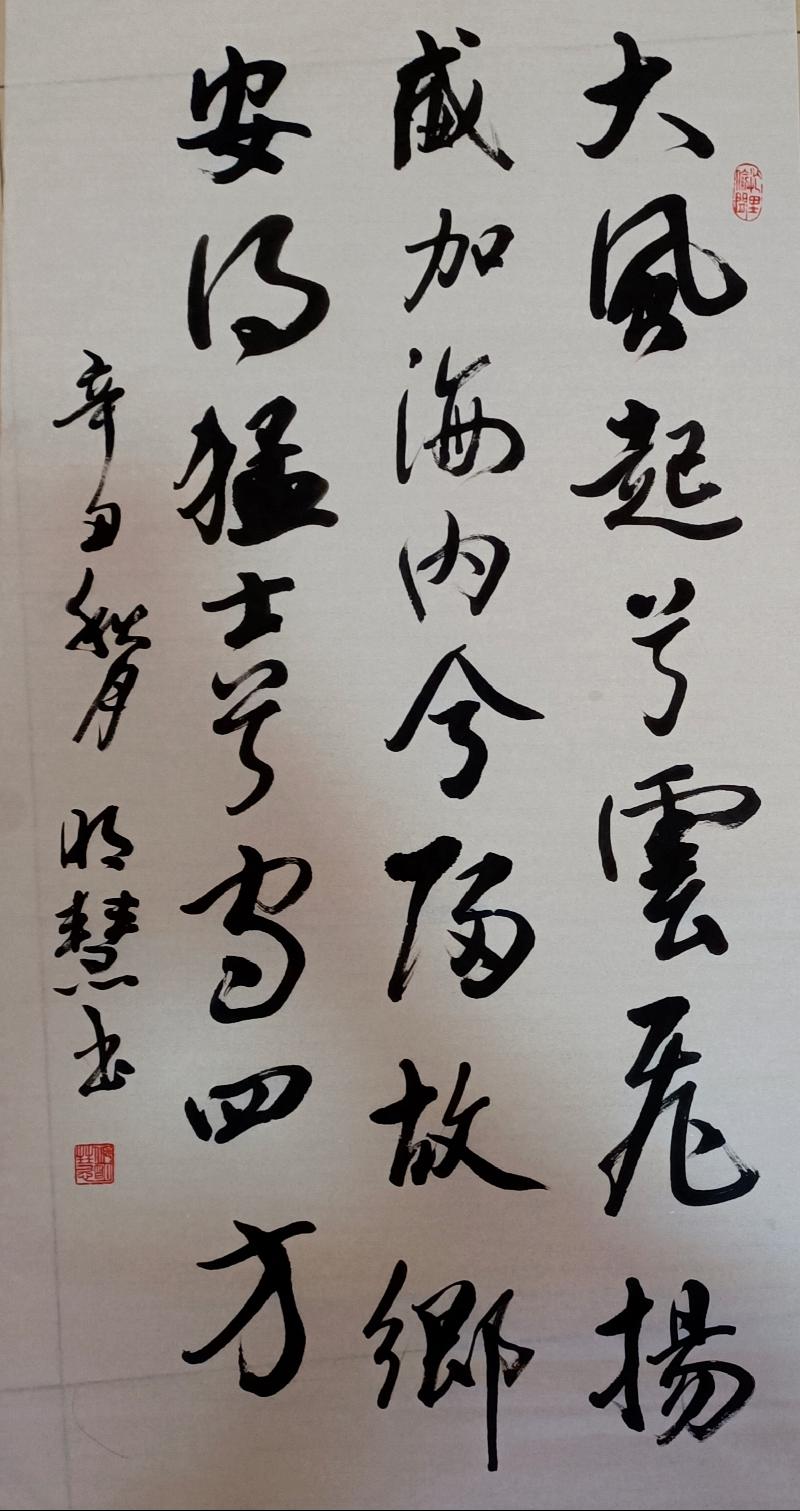 大風起兮雲飛揚
威加海内兮歸故鄉
安得猛士兮守四方
辛丑秋月 明慧书